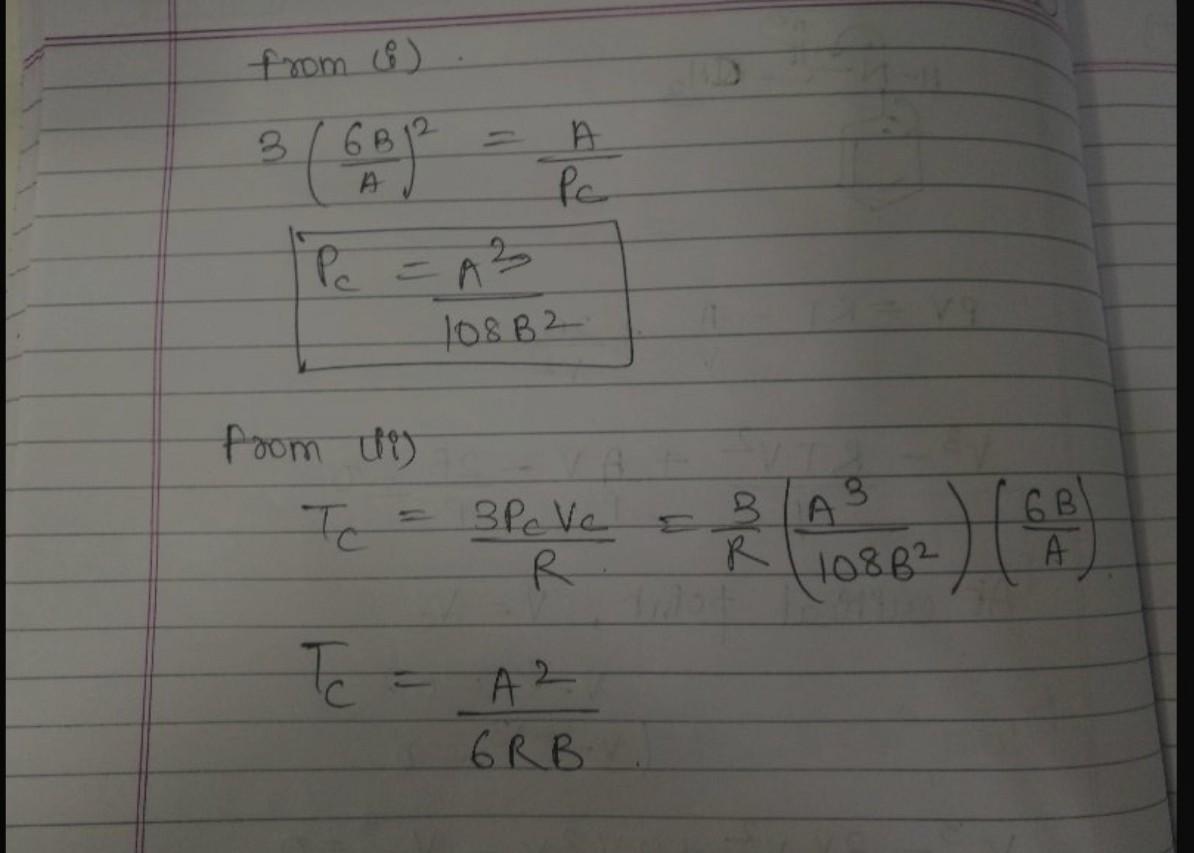 from (i).
3 (6B/A)² = A/Pc
Pc = A³/108B²
from (ii)
Tc = 3PcVc/R = 3/R (A³/108B²) (6B/A).
Tc = A²/6RB.